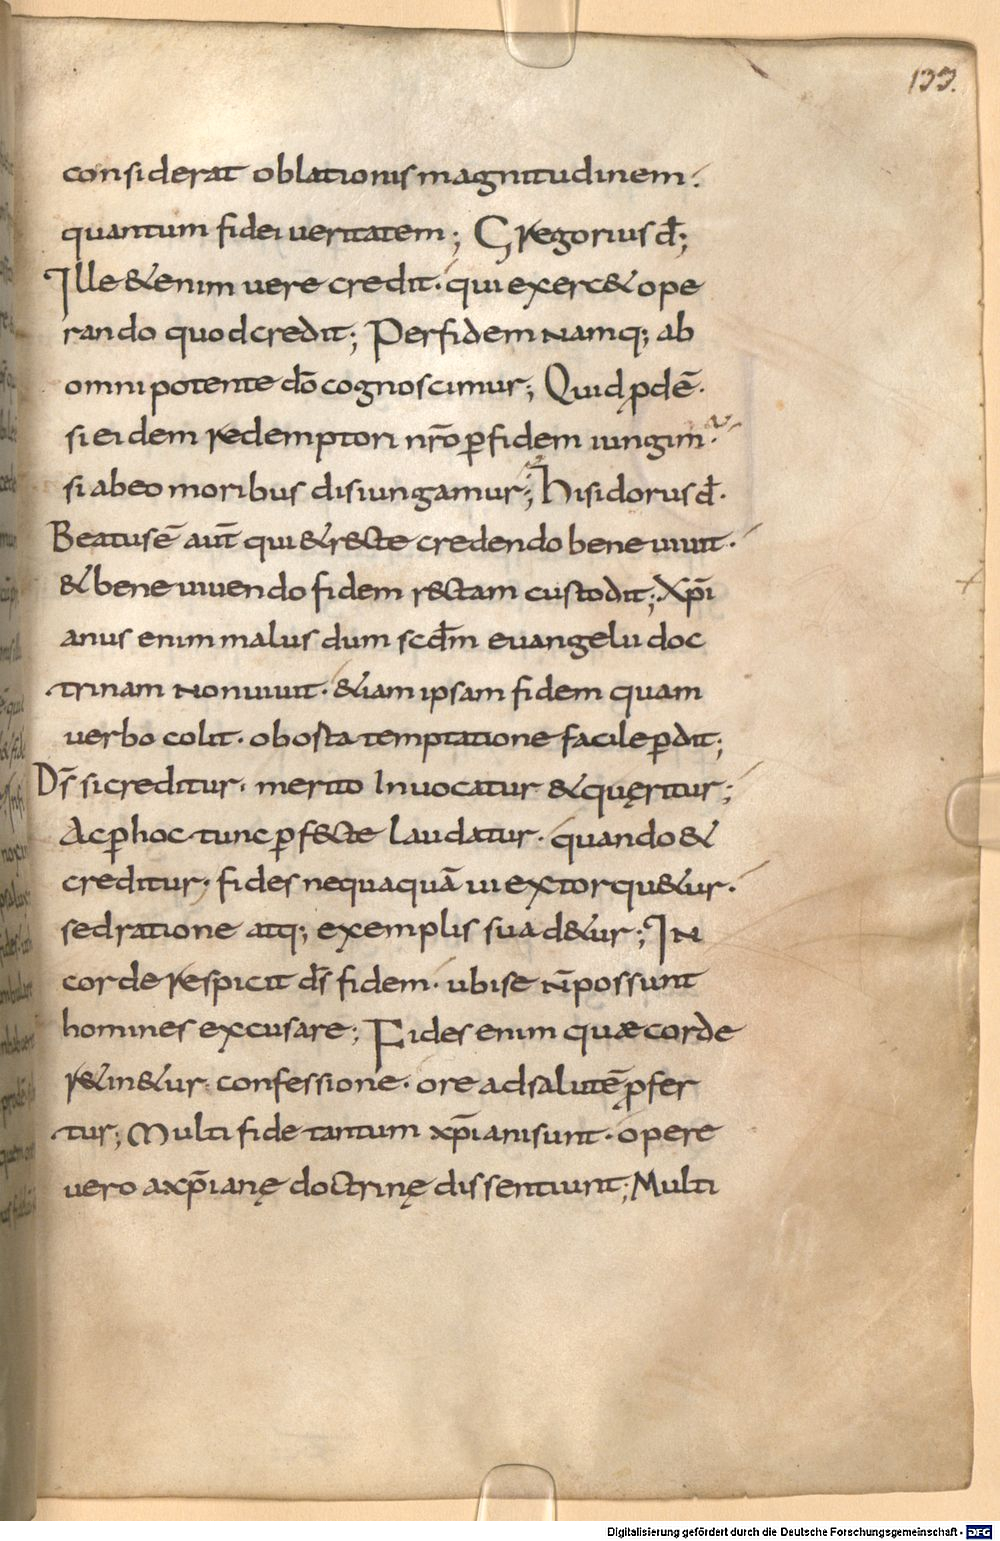 133.
considerat oblationis magnitudinem.
quantum fidei ueritatem; Gregorius d̄;
Ille &enim uere credit· qui exerc& ope
rando quod credit; Per fidem namq; ab
omnipotente dō cognoscimur; Quid ꝓdē·
si eidem redemptori nr̄o ꝑ fidem iungimur·
si ab eo moribus disiungamur; hisidorus d̄·
Beatus ē aut̄ qui & recte credendo bene uiuit·
& bene uiuendo fidem rectam custodit; Xp̄i
anus enim malus dum scdm̄ euangelii doc
trinam non uiuit· &iam ipsam fidem quam
uerbo colit· obosta temptatione facile ꝑdit;
Ds̄ si creditur· merito Inuocatur & quęritur;
Ac ꝑ hoc tunc ꝑfecte laudatur· quando &
creditur· fides nequaquā ui extorqu&ur·
sed ratione atq; exemplis suad&ur; IN
corde respicit ds̄ fidem· ubi se n̄ possunt
homines excusare; Fides enim quæ corde
r&in&ur· confessione· ore ad salutē ꝓfer
tur; Multi fide tantum xp̄iani sunt· opere
uero a xp̄ianę doctrinę dissentiunt; Multi
Digitalisierung gefördert durch die Deutsche Forschungsgemeinschaft - DFG